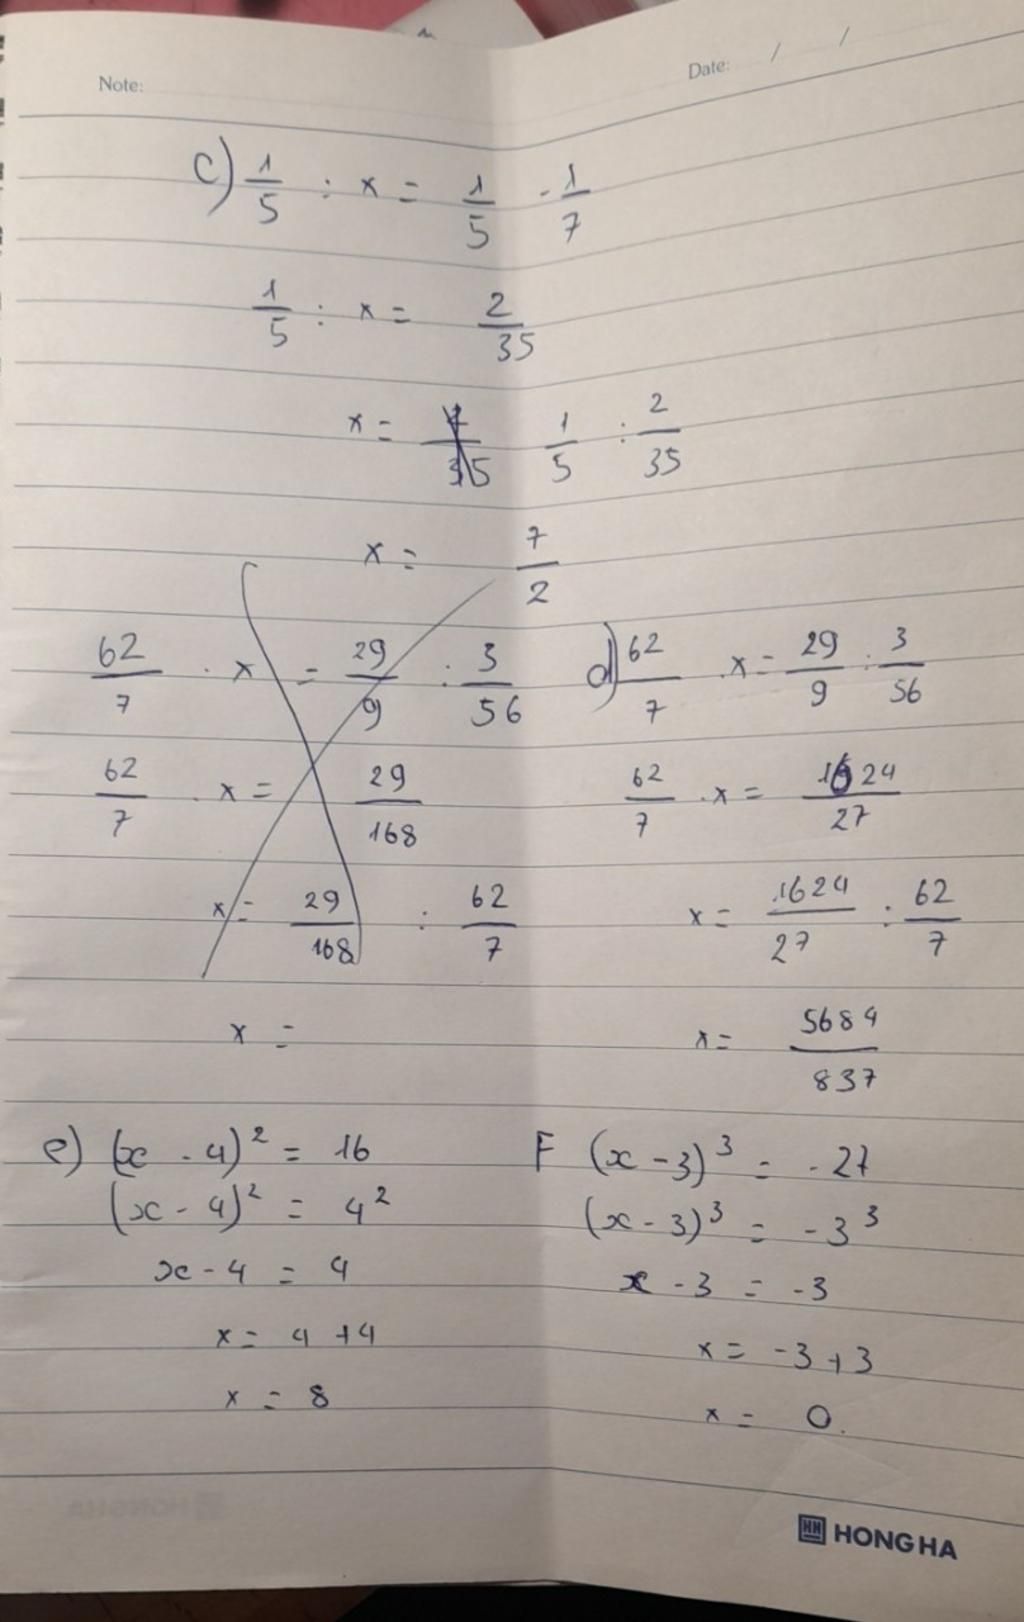 Note:
Date: / /
c) 1/5 : x = 1/5 - 1/7
1/5 : x = 2/35
x = 1/5 : 2/35
x = 7/2
62/7 . x = 29/9 : 3/56
62/7 . x = 29/168
x = 29/168 : 62/7
x =
d) 62/7 . x = 29/9 : 3/56
62/7 . x = 1624/27
x = 1624/27 : 62/7
x = 5684/837
e) (x - 4)² = 16
(x - 4)² = 4²
x - 4 = 4
x = 4 + 4
x = 8
F (x - 3)³ = -27
(x - 3)³ = -3³
x - 3 = -3
x = -3 + 3
x = 0.
HH HONG HA